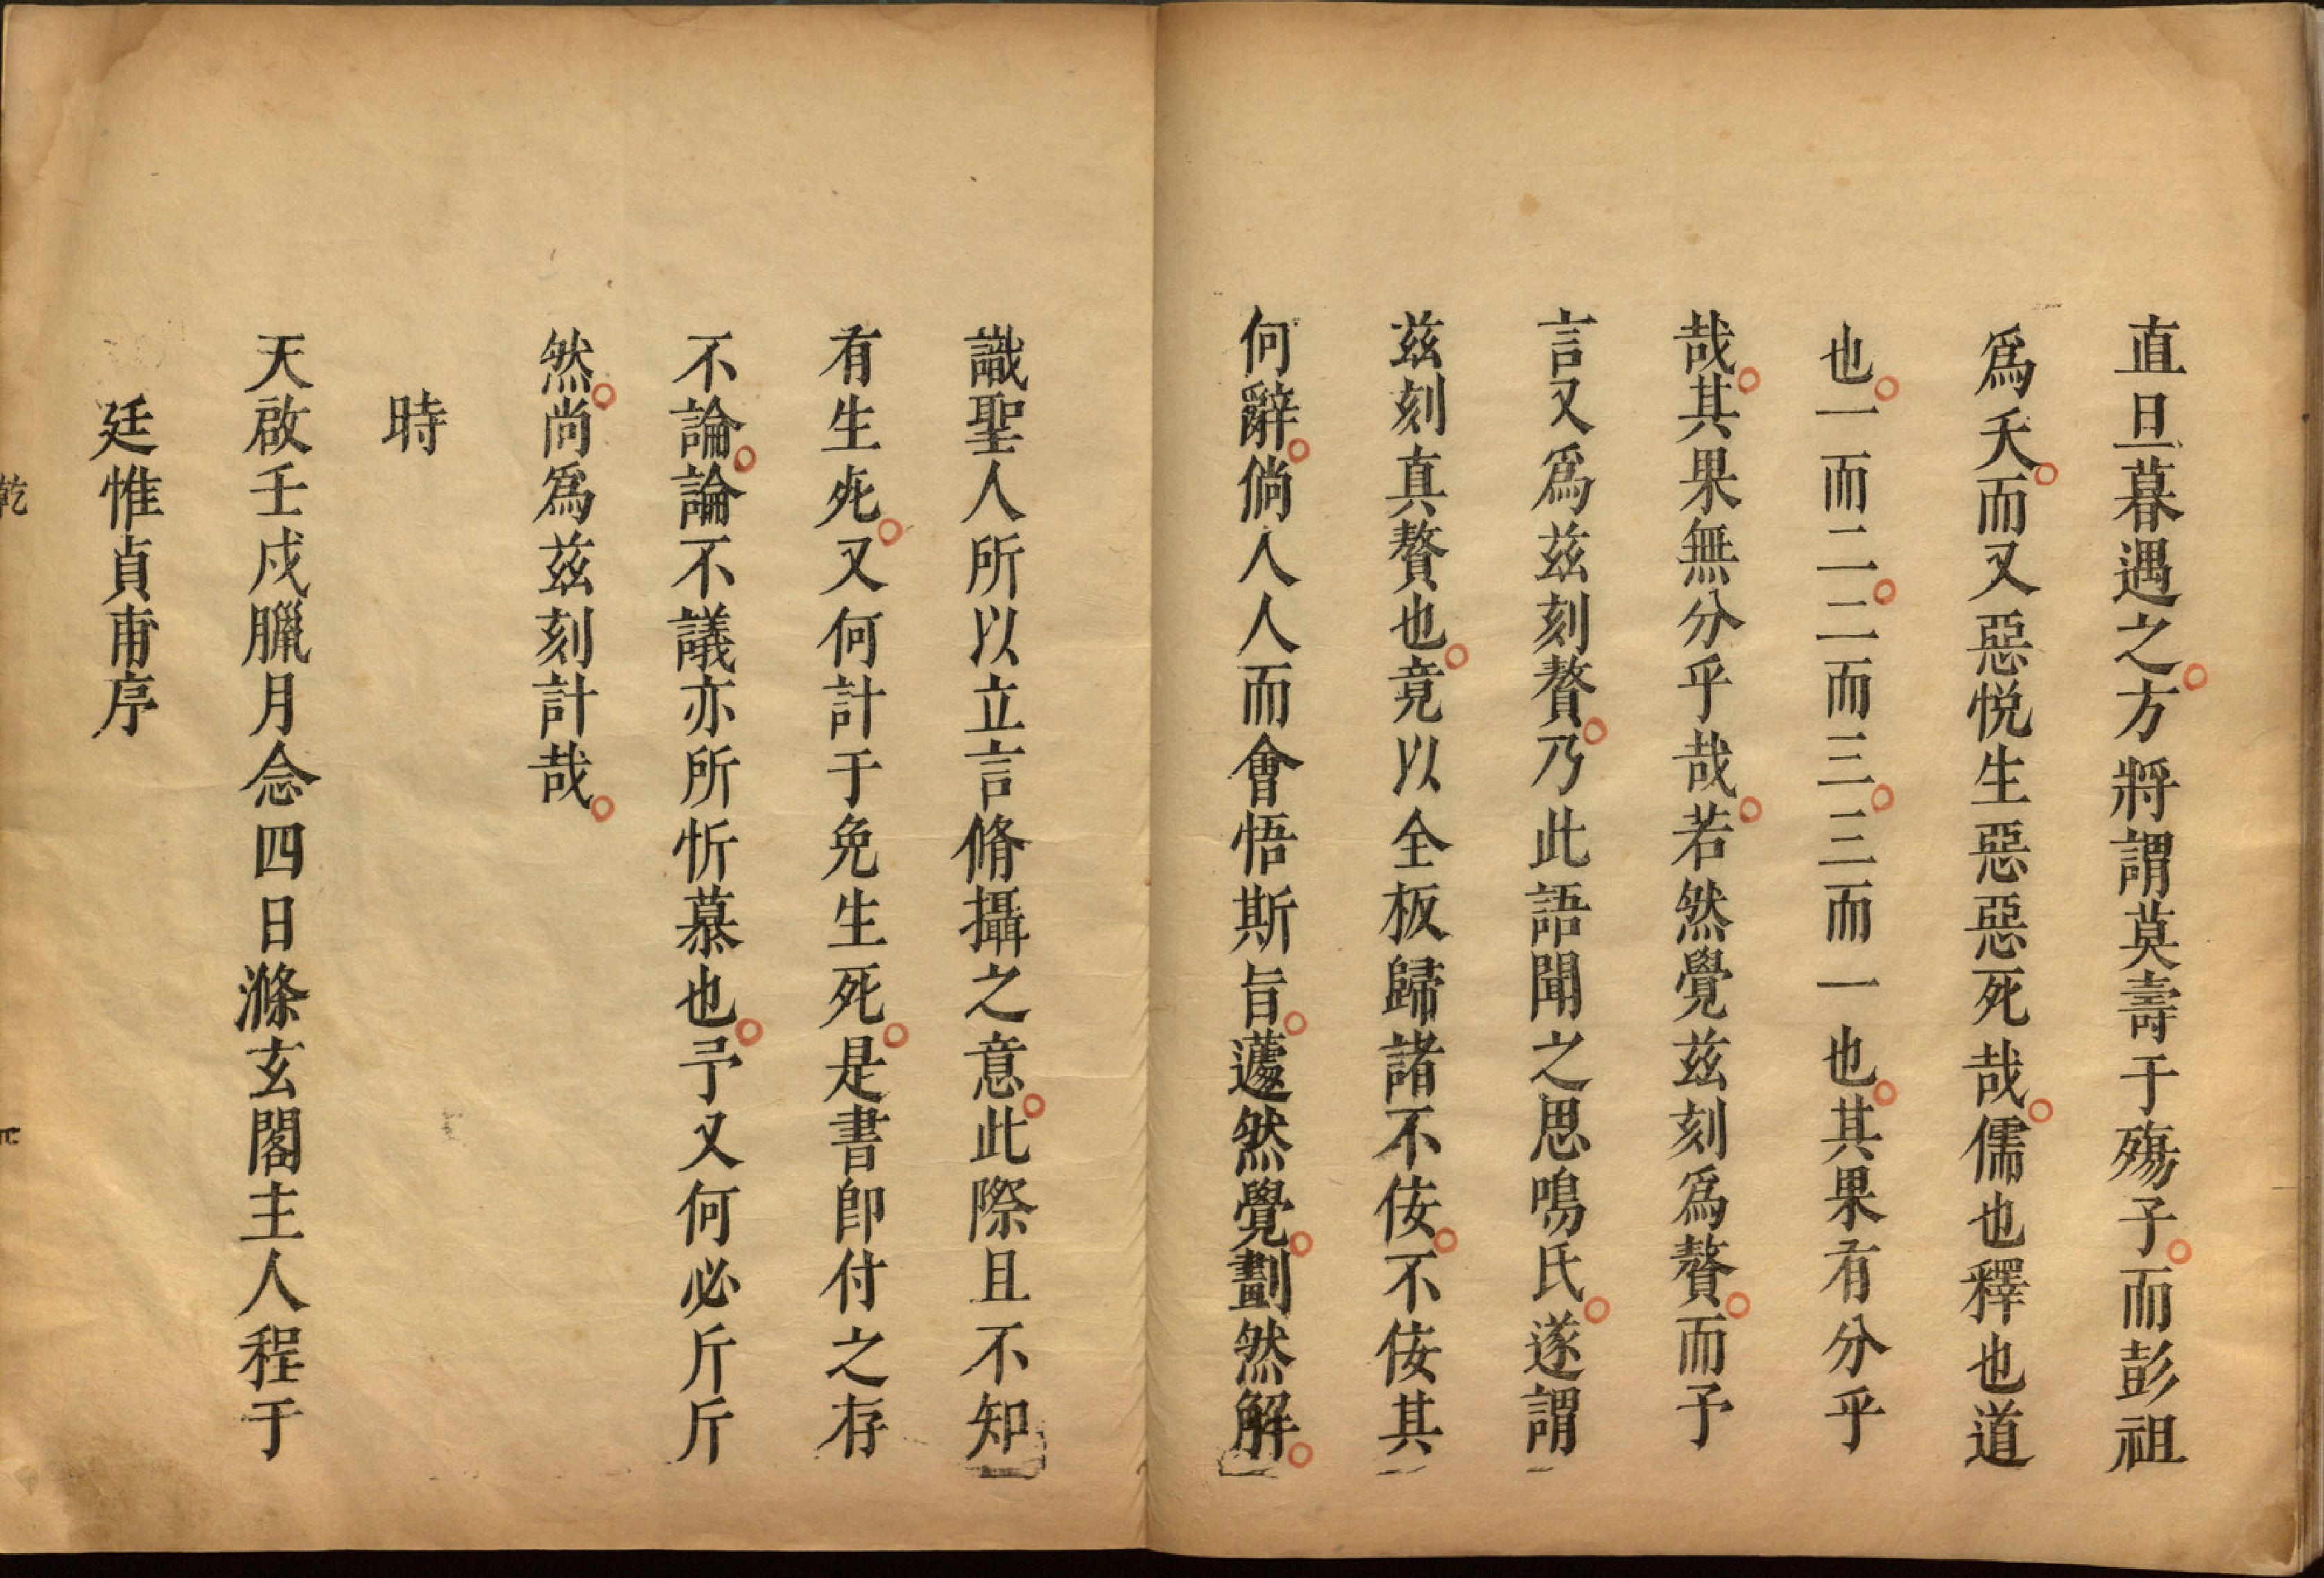 直旦暮遇之。方將謂莫壽于殤子。而彭祖
爲夭。而又惡悅生惡惡死哉。儒也釋也道
也。一而二。二而三。三而一也。其果有分乎
哉。其果無分乎哉。若然覺兹刻爲贅。而予
言又爲兹刻贅。乃此語聞之思鳴氏。遂謂
兹刻真贅也。竟以全板歸諸不佞。不佞其
何辭。倘人人而會悟斯旨。蘧然覺。劃然解。
識聖人所以立言脩攝之意。此際且不知
有生死。又何計于免生死。是書卽付之存
不論。論不議亦所忻慕也。予又何必斤斤
然。尚爲兹刻計哉。
時
天啟壬戌臘月念四日滌玄閣主人程于
廷惟貞甫序
乾